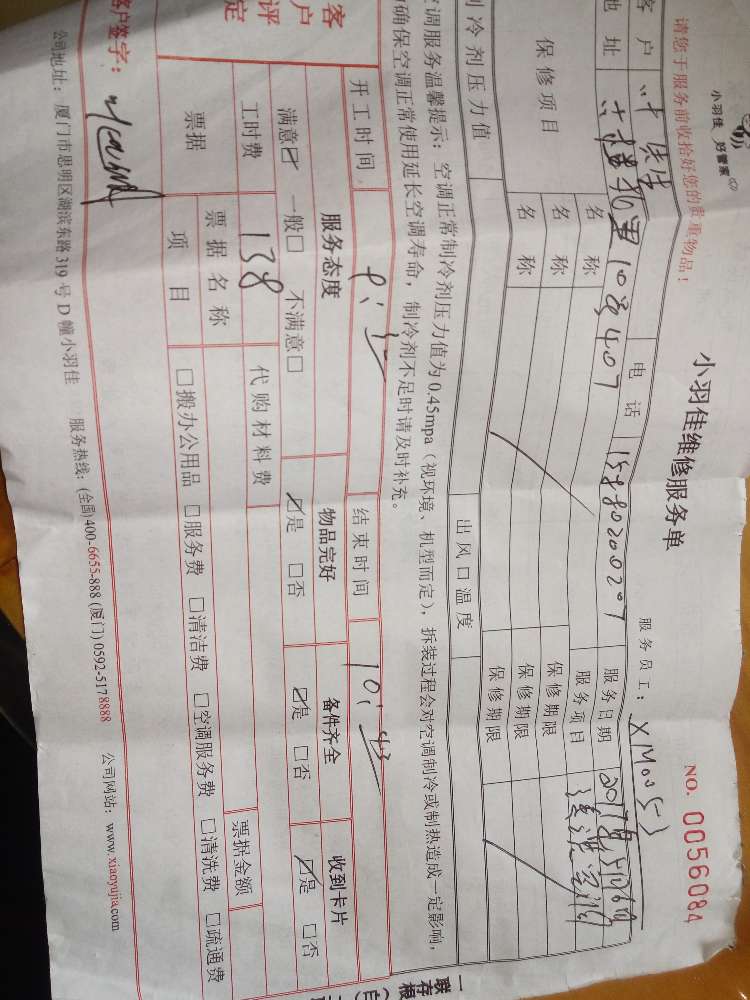 小羽佳 好管家
请您于服务前收拾好您的贵重物品！
小羽佳维修服务单
NO. 0056084
服务员工：
客户
电话 15880200207
服务日期
地址 10号407
服务项目
保修项目
名称
保修期限
名称
保修期限
名称
保修期限
制冷剂压力值
出风口温度
空调服务温馨提示：空调正常制冷剂压力值为0.45mpa（视环境、机型而定），拆装过程会对空调制冷或制热造成一定影响，
确保空调正常使用延长空调寿命，制冷剂不足时请及时补充。
开工时间
结束时间 10:43
客户评定
服务态度 物品完好 备件齐全 收到卡片
满意☑ 一般□ 不满意□ ☑是 □否 ☑是 □否 ☑是 □否
工时费 138 代购材料费
票据
票据名称
票据金额
项目
□搬办公用品 □服务费 □清洁费 □空调服务费 □清洗费 □疏通费
客户签字：
公司地址：厦门市思明区湖滨东路319号D幢小羽佳 服务热线：(全国)400-6655-888 (厦门) 0592-5178888 公司网站：www.xiaoyujia.com
一联存根